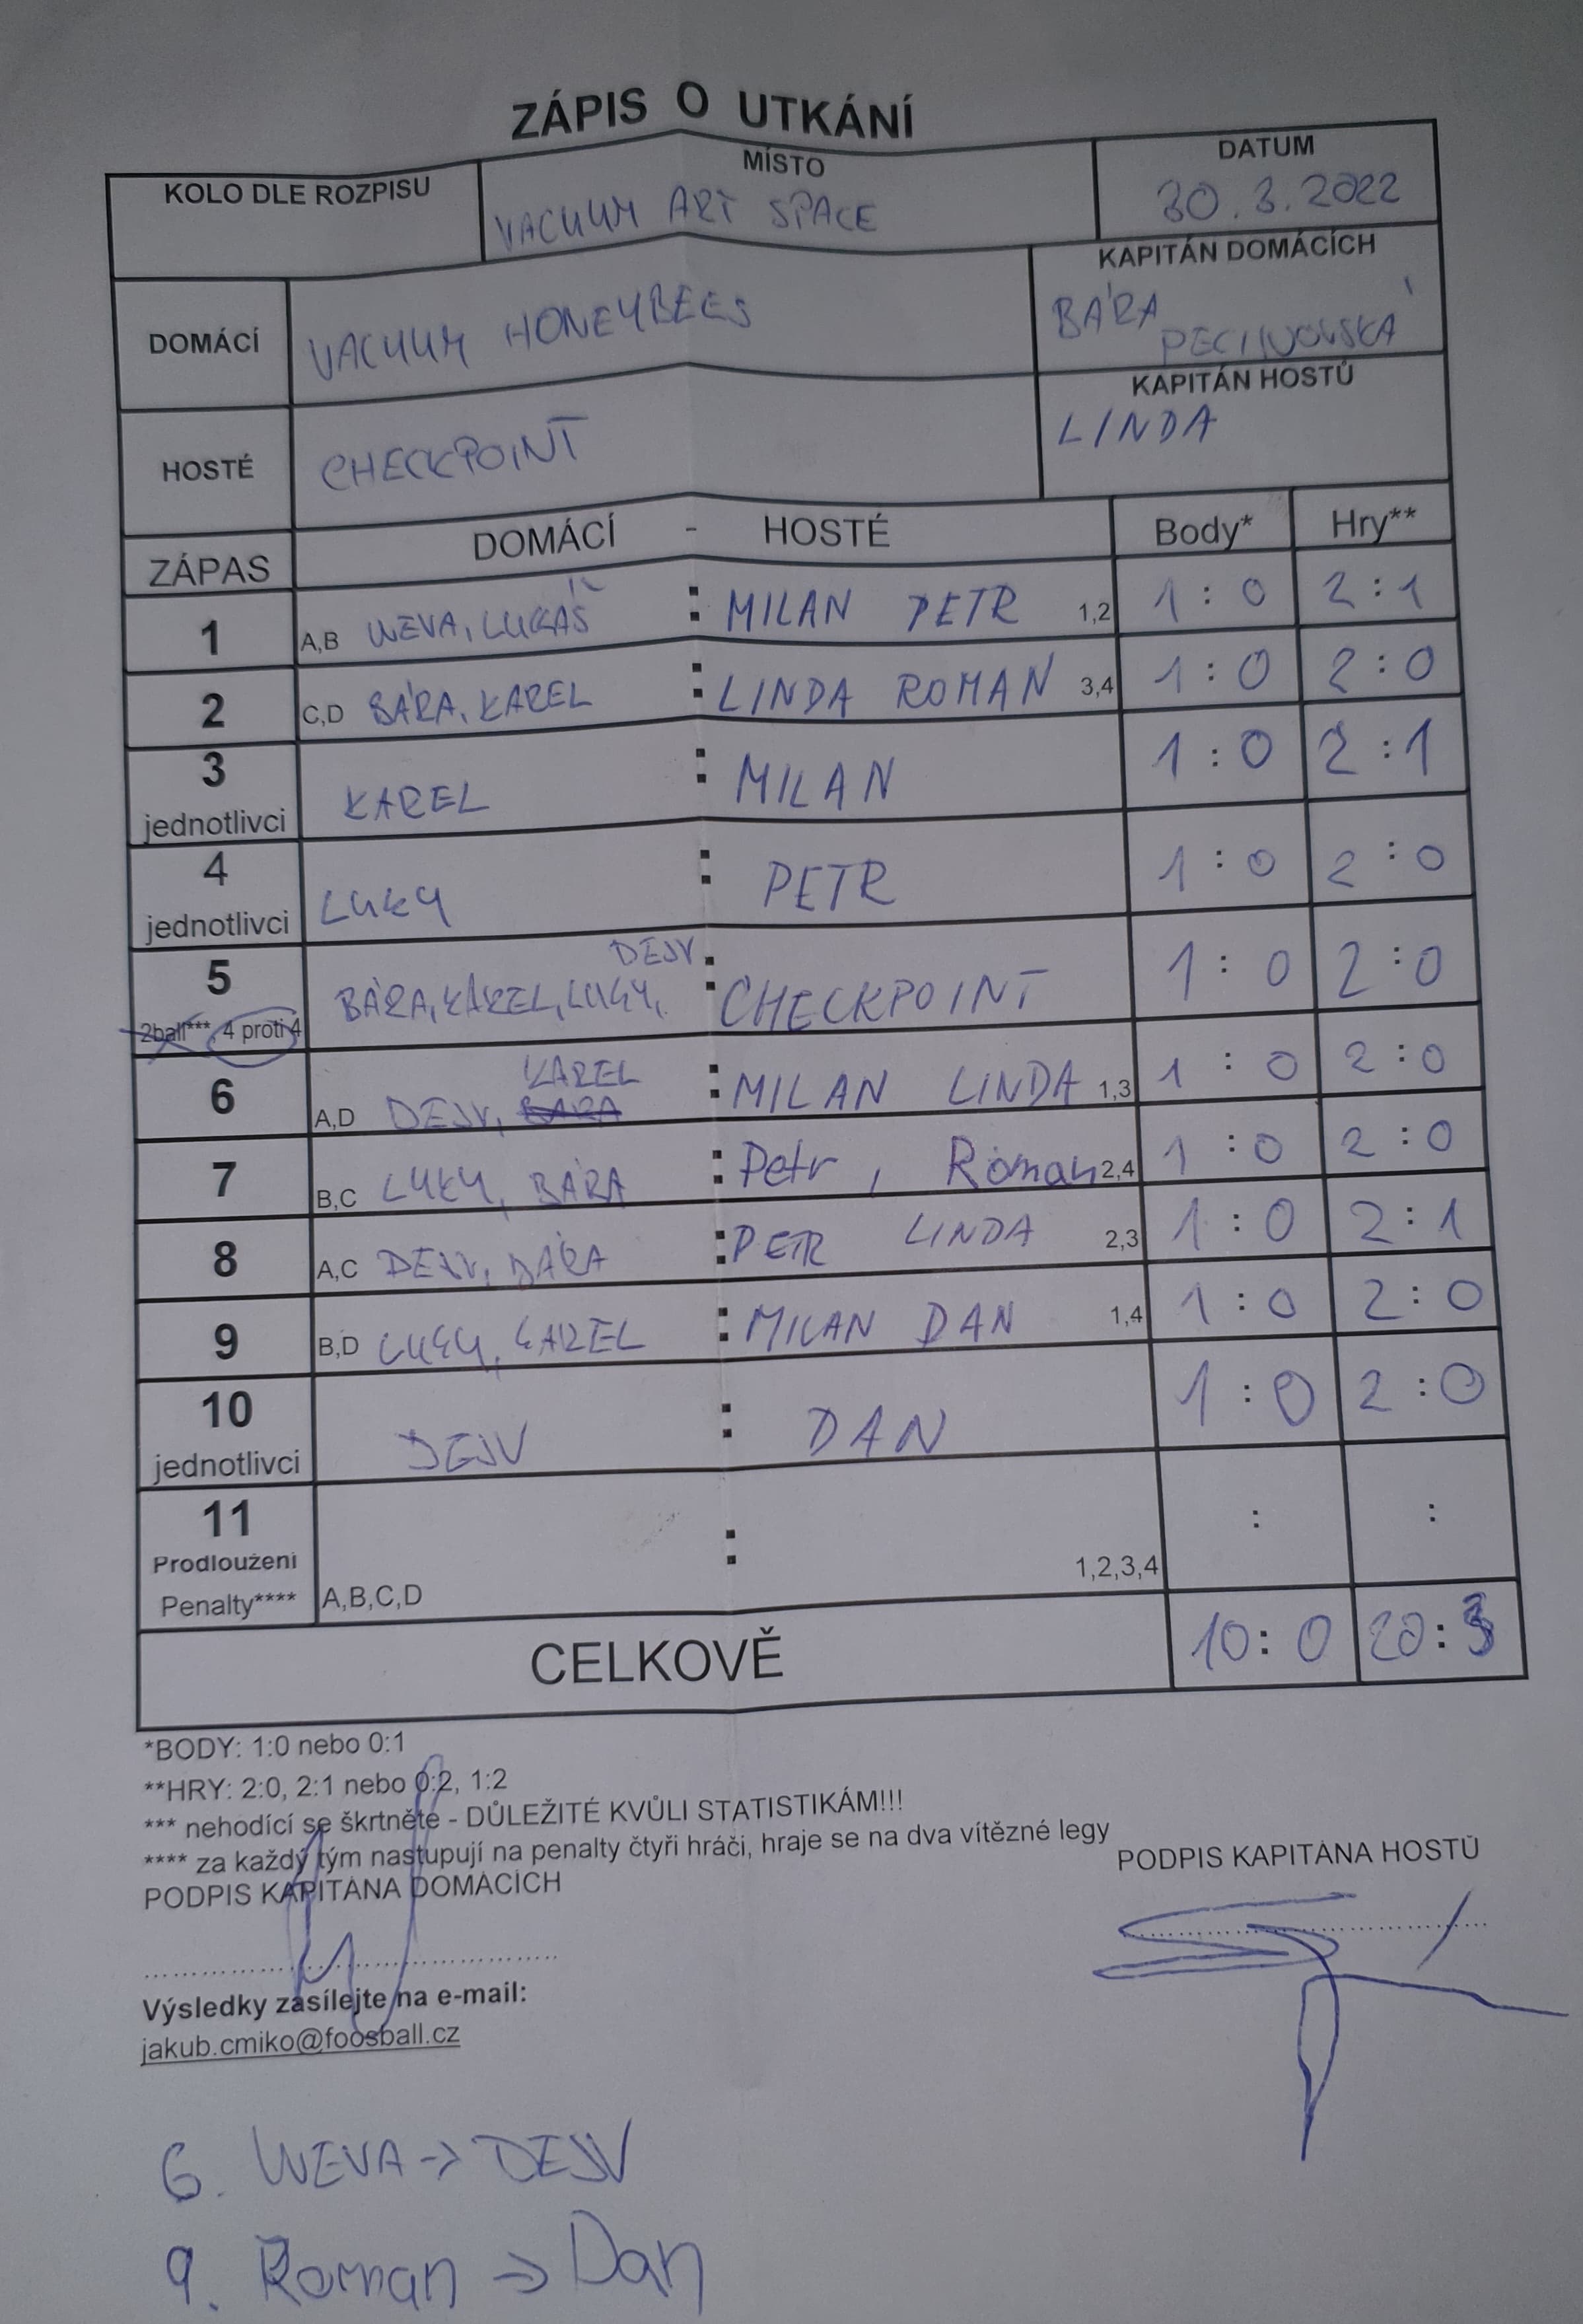 ZÁPIS O UTKÁNÍ
KOLO DLE ROZPISU
MÍSTO
VACUUM ART SPACE
DATUM
30.3.2022
DOMÁCÍ
VACUUM HONEYBEES
KAPITÁN DOMÁCÍCH
BÁRA
HOSTÉ
CHECKPOINT
KAPITÁN HOSTŮ
LINDA
ZÁPAS DOMÁCÍ - HOSTÉ Body* Hry**
1 A,B WEVA, LUKÁŠ : MILAN PETR 1,2 1:0 2:1
2 C,D BÁRA, KAREL : LINDA ROMAN 3,4 1:0 2:0
3 jednotlivci KAREL : MILAN 1:0 2:1
4 jednotlivci LUKY : PETR 1:0 2:0
DESV
5 BÁRA, KAREL, LUKY, : CHECKPOINT 1:0 2:0
2ball*** 4 proti 4
KAREL
6 A,D DESV, BÁRA : MILAN LINDA 1,3 1:0 2:0
7 B,C LUKY, BÁRA : Petr, Roman 2,4 1:0 2:0
8 A,C DESV, BÁRA : PETR LINDA 2,3 1:0 2:1
9 B,D LUKY, KAREL : MILAN DAN 1,4 1:0 2:0
10 jednotlivci DESV : DAN 1:0 2:0
11 : : :
Prodloužení
Penalty**** A,B,C,D 1,2,3,4
CELKOVĚ 10:0 20:3
*BODY: 1:0 nebo 0:1
**HRY: 2:0, 2:1 nebo 0:2, 1:2
*** nehodící se škrtněte - DŮLEŽITÉ KVŮLI STATISTIKÁM!!!
**** za každý tým nastupují na penalty čtyři hráči, hraje se na dva vítězné legy
PODPIS KAPITÁNA DOMÁCÍCH
PODPIS KAPITÁNA HOSTŮ
Výsledky zasílejte na e-mail:
jakub.cmiko@foosball.cz
6. WEVA → DESV
9. Roman → Dan